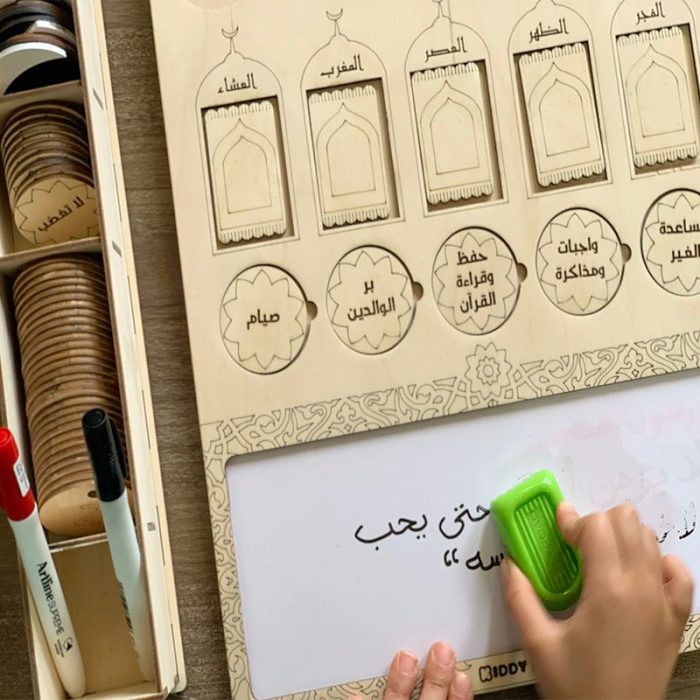 الفجر
الظهر
العصر
المغرب
العشاء
ساعدة
الغير
واجبات
ومذاكرة
حفظ
وقراءة
القرآن
بر
الوالدين
صيام
لا تغضب
حتى يحب
سه“
KIDDY
Artline SUPREME